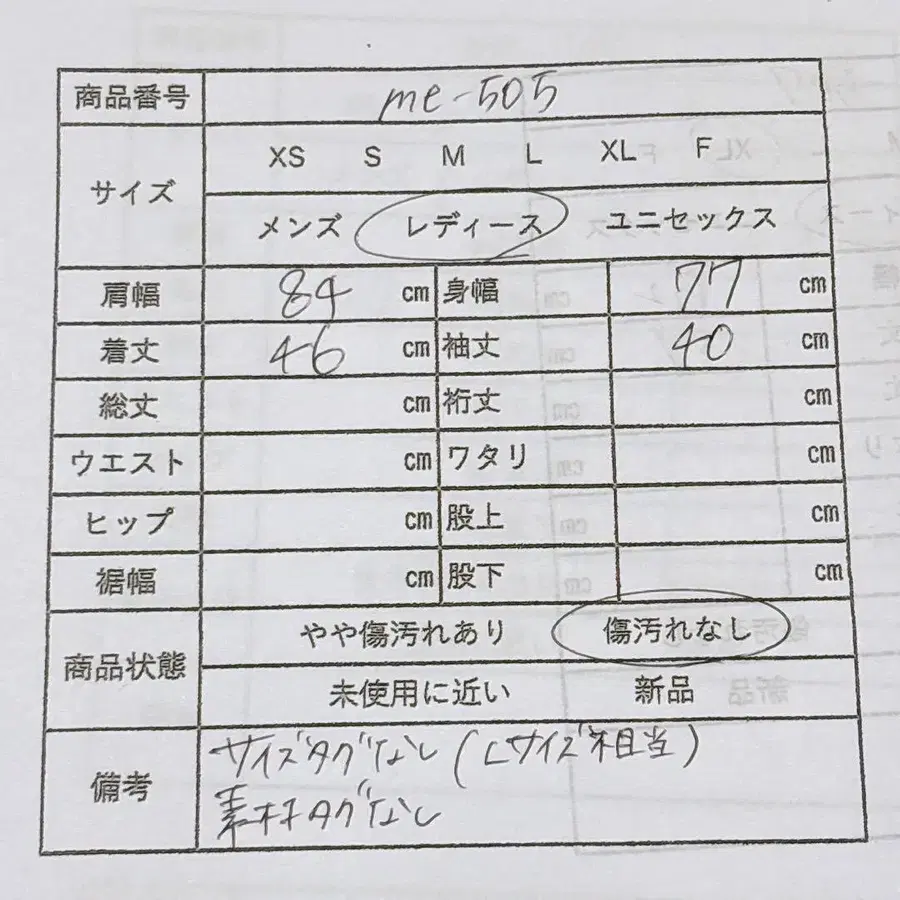 商品番号 me-505
サイズ XS S M L XL F
メンズ レディース ユニセックス
肩幅 84 cm 身幅 77 cm
着丈 46 cm 袖丈 40 cm
総丈 cm 裄丈 cm
ウエスト cm ワタリ cm
ヒップ cm 股上 cm
裾幅 cm 股下 cm
商品状態 やや傷汚れあり 傷汚れなし
未使用に近い 新品
備考 サイズタグなし(Lサイズ相当)
素材タグなし